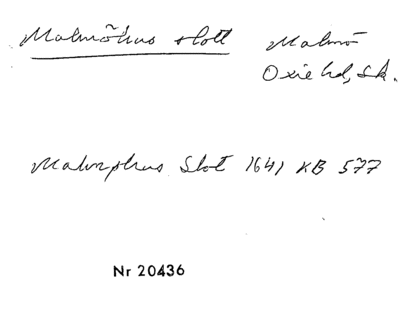 Malmöhus slott Malmö
Oxie hd, Sk.
Malmøhus Slot 1641 KB 577
Nr 20436